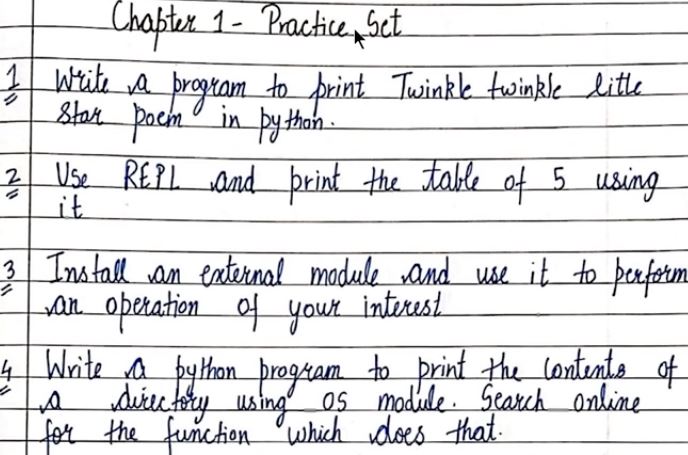 Chapter 1 - Practice Set
1 Write a program to print Twinkle twinkle little
Star poem in python.
2 Use REPL and print the table of 5 using
it
3 Install an external module and use it to perform
an operation of your interest
4 Write a python program to print the contents of
a directory using os module. Search online
for the function which does that.